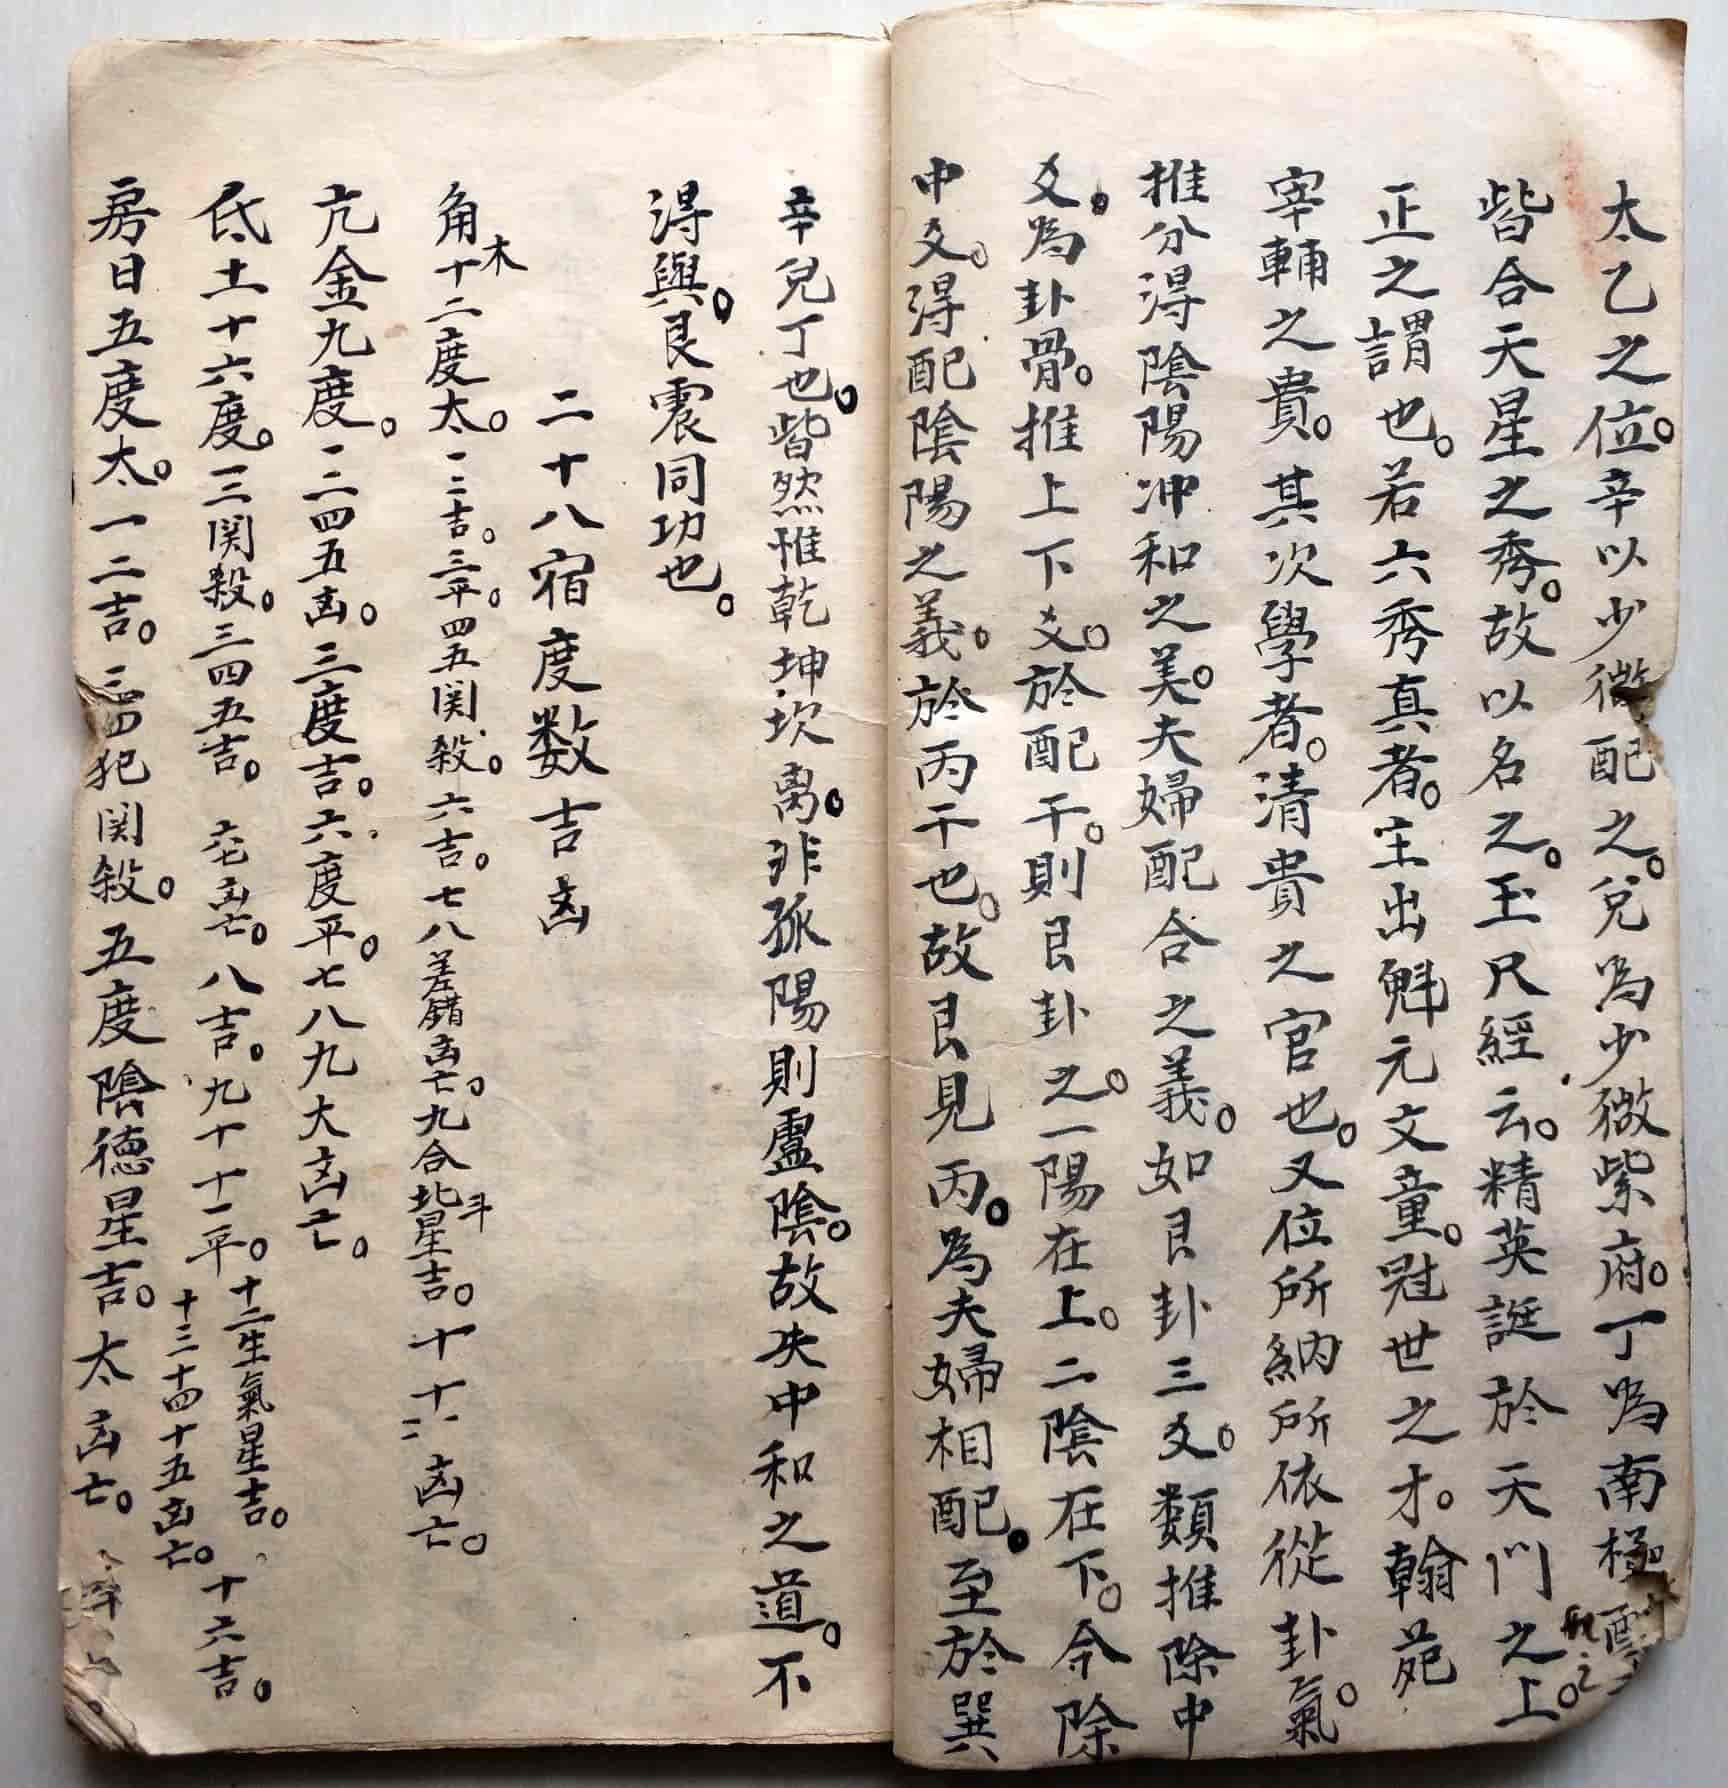 太乙之位。辛以少微配之。兌為少微紫府。丁為南極
皆合天星之秀。故以名之。玉尺經云。精英誕於天門之上。
正之謂也。若六秀真者。主出魁元文童。冠世之才。翰苑
宰輔之貴。其次學者。清貴之官也。又位所納所依從卦氣。
推分得陰陽冲和之美。夫婦配合之義。如艮卦三爻。類推除中
爻。為卦骨。推上下爻。於配干。則艮卦之。一陽在上。二陰在下。今除
中爻。得配陰陽之義。於丙干也。故艮見丙。為夫婦相配。至於巽
辛兌丁也。皆然惟乾坤坎离。非孤陽則盧陰。故失中和之道。不
得與。艮震同功也。
二十八宿度数吉凶
角木十二度太。一二吉。三平。四五関殺。六吉。七八差錯凶亡。九合北斗星吉。十十一十二凶亡。
亢金九度。一二四五凶。三度吉。六度平。七八九大凶亡。
氐土十六度。一二関殺。三四五吉。六七凶亡。八吉。九十十一平。十二生氣星吉。十三十四十五凶亡。十六吉。
房日五度太。一二吉。三四犯関殺。五度陰德星吉。太凶亡。